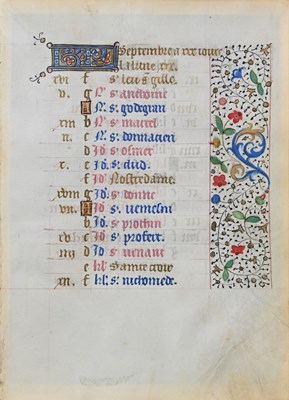 Septembre a xxx iours
La lune xxx.
xvi f s. leu s. gille.
v g N s. anthoine
A N s. godegran
xiii b N s. marcel
ii c N s. donnacien
d s. osmer
x e s. clud.
f Nostre dame.
xviii g Id s. donne
vii A Id s.
b Id s. prothin
xv c Id s. profect.
iiii d Id s. venant
e kl Sainte crois
xii f kl s. nichomede.